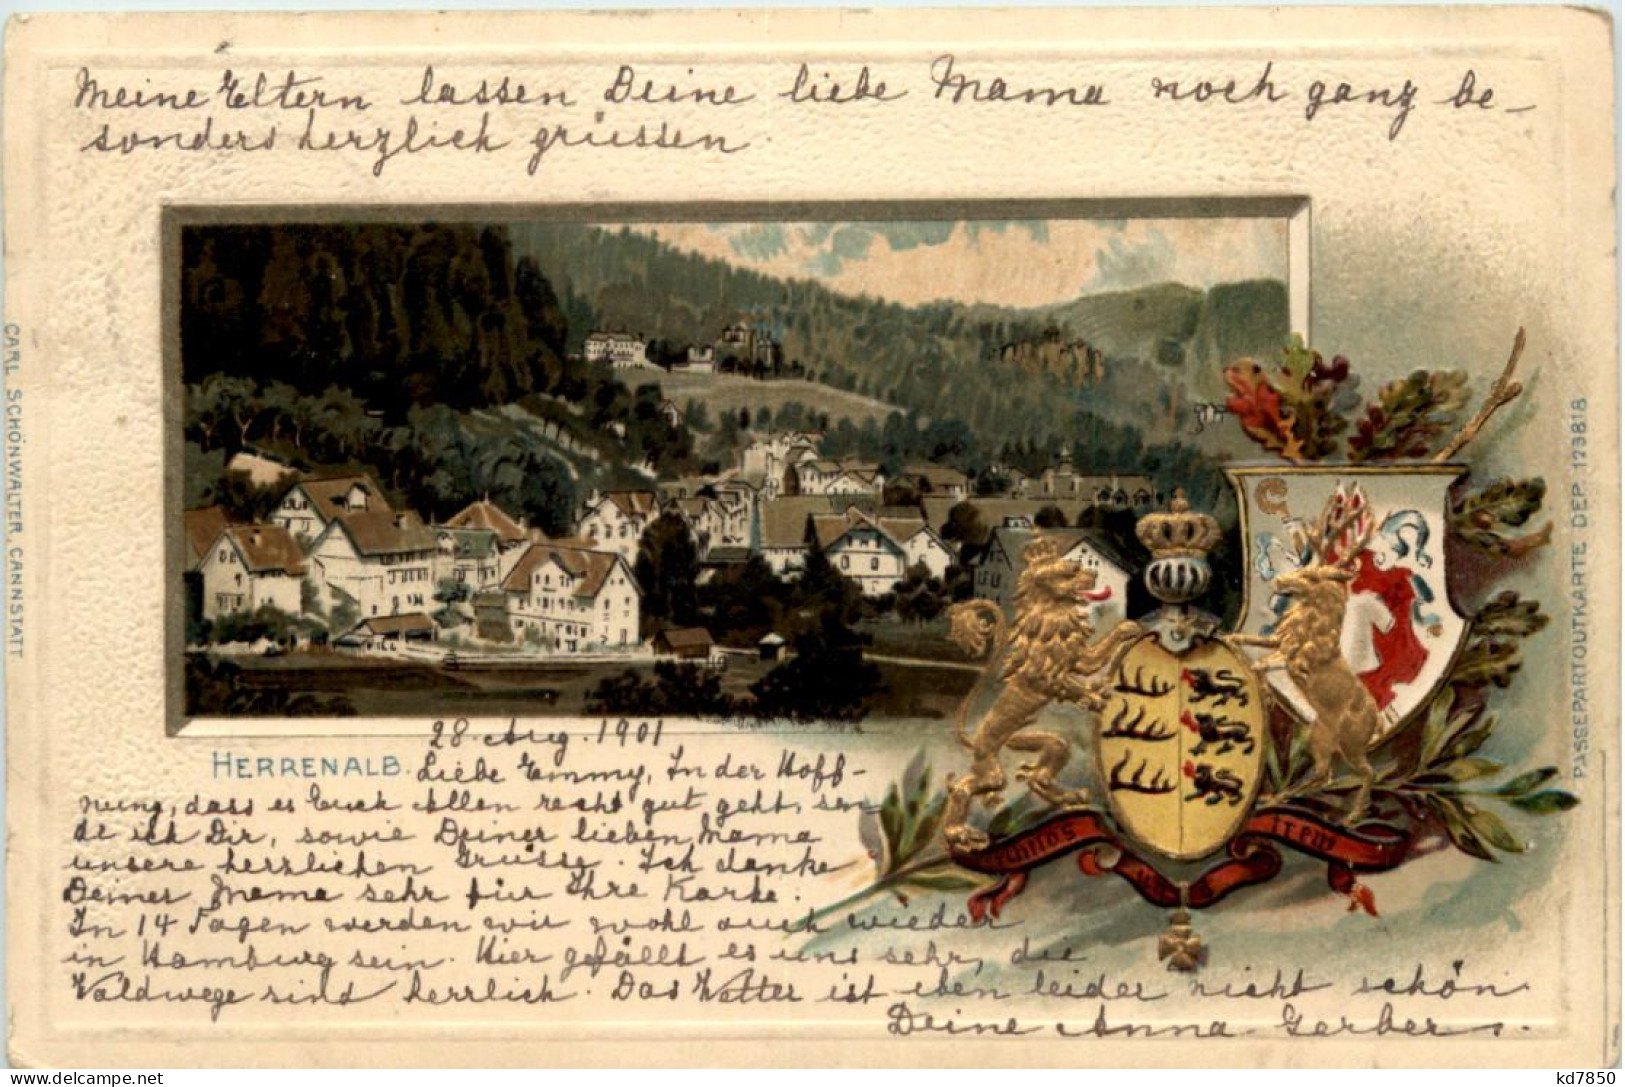 Meine Eltern lassen Deine liebe Mama noch ganz be-
sonders herzlich grüssen.
CARL SCHÖNWALTER, CANNSTATT
PASSEPARTOUTKARTE DEP. 123818
furchtlos
und
treu
28. Aug. 1901
HERRENALB.
Liebe Emmy, In der Hoff-
nung, dass es Euch Allen recht gut geht, sen-
de ich Dir, sowie Deiner lieben Mama
unsere herzlichen Grüsse. Ich danke
Deiner Mama sehr für Ihre Karte.
In 14 Tagen werden wir wohl auch wieder
in Hamburg sein. Hier gefällt es uns sehr, die
Waldwege sind herrlich. Das Wetter ist eben leider nicht schön.
Deine Anna Gerber.
kd7850